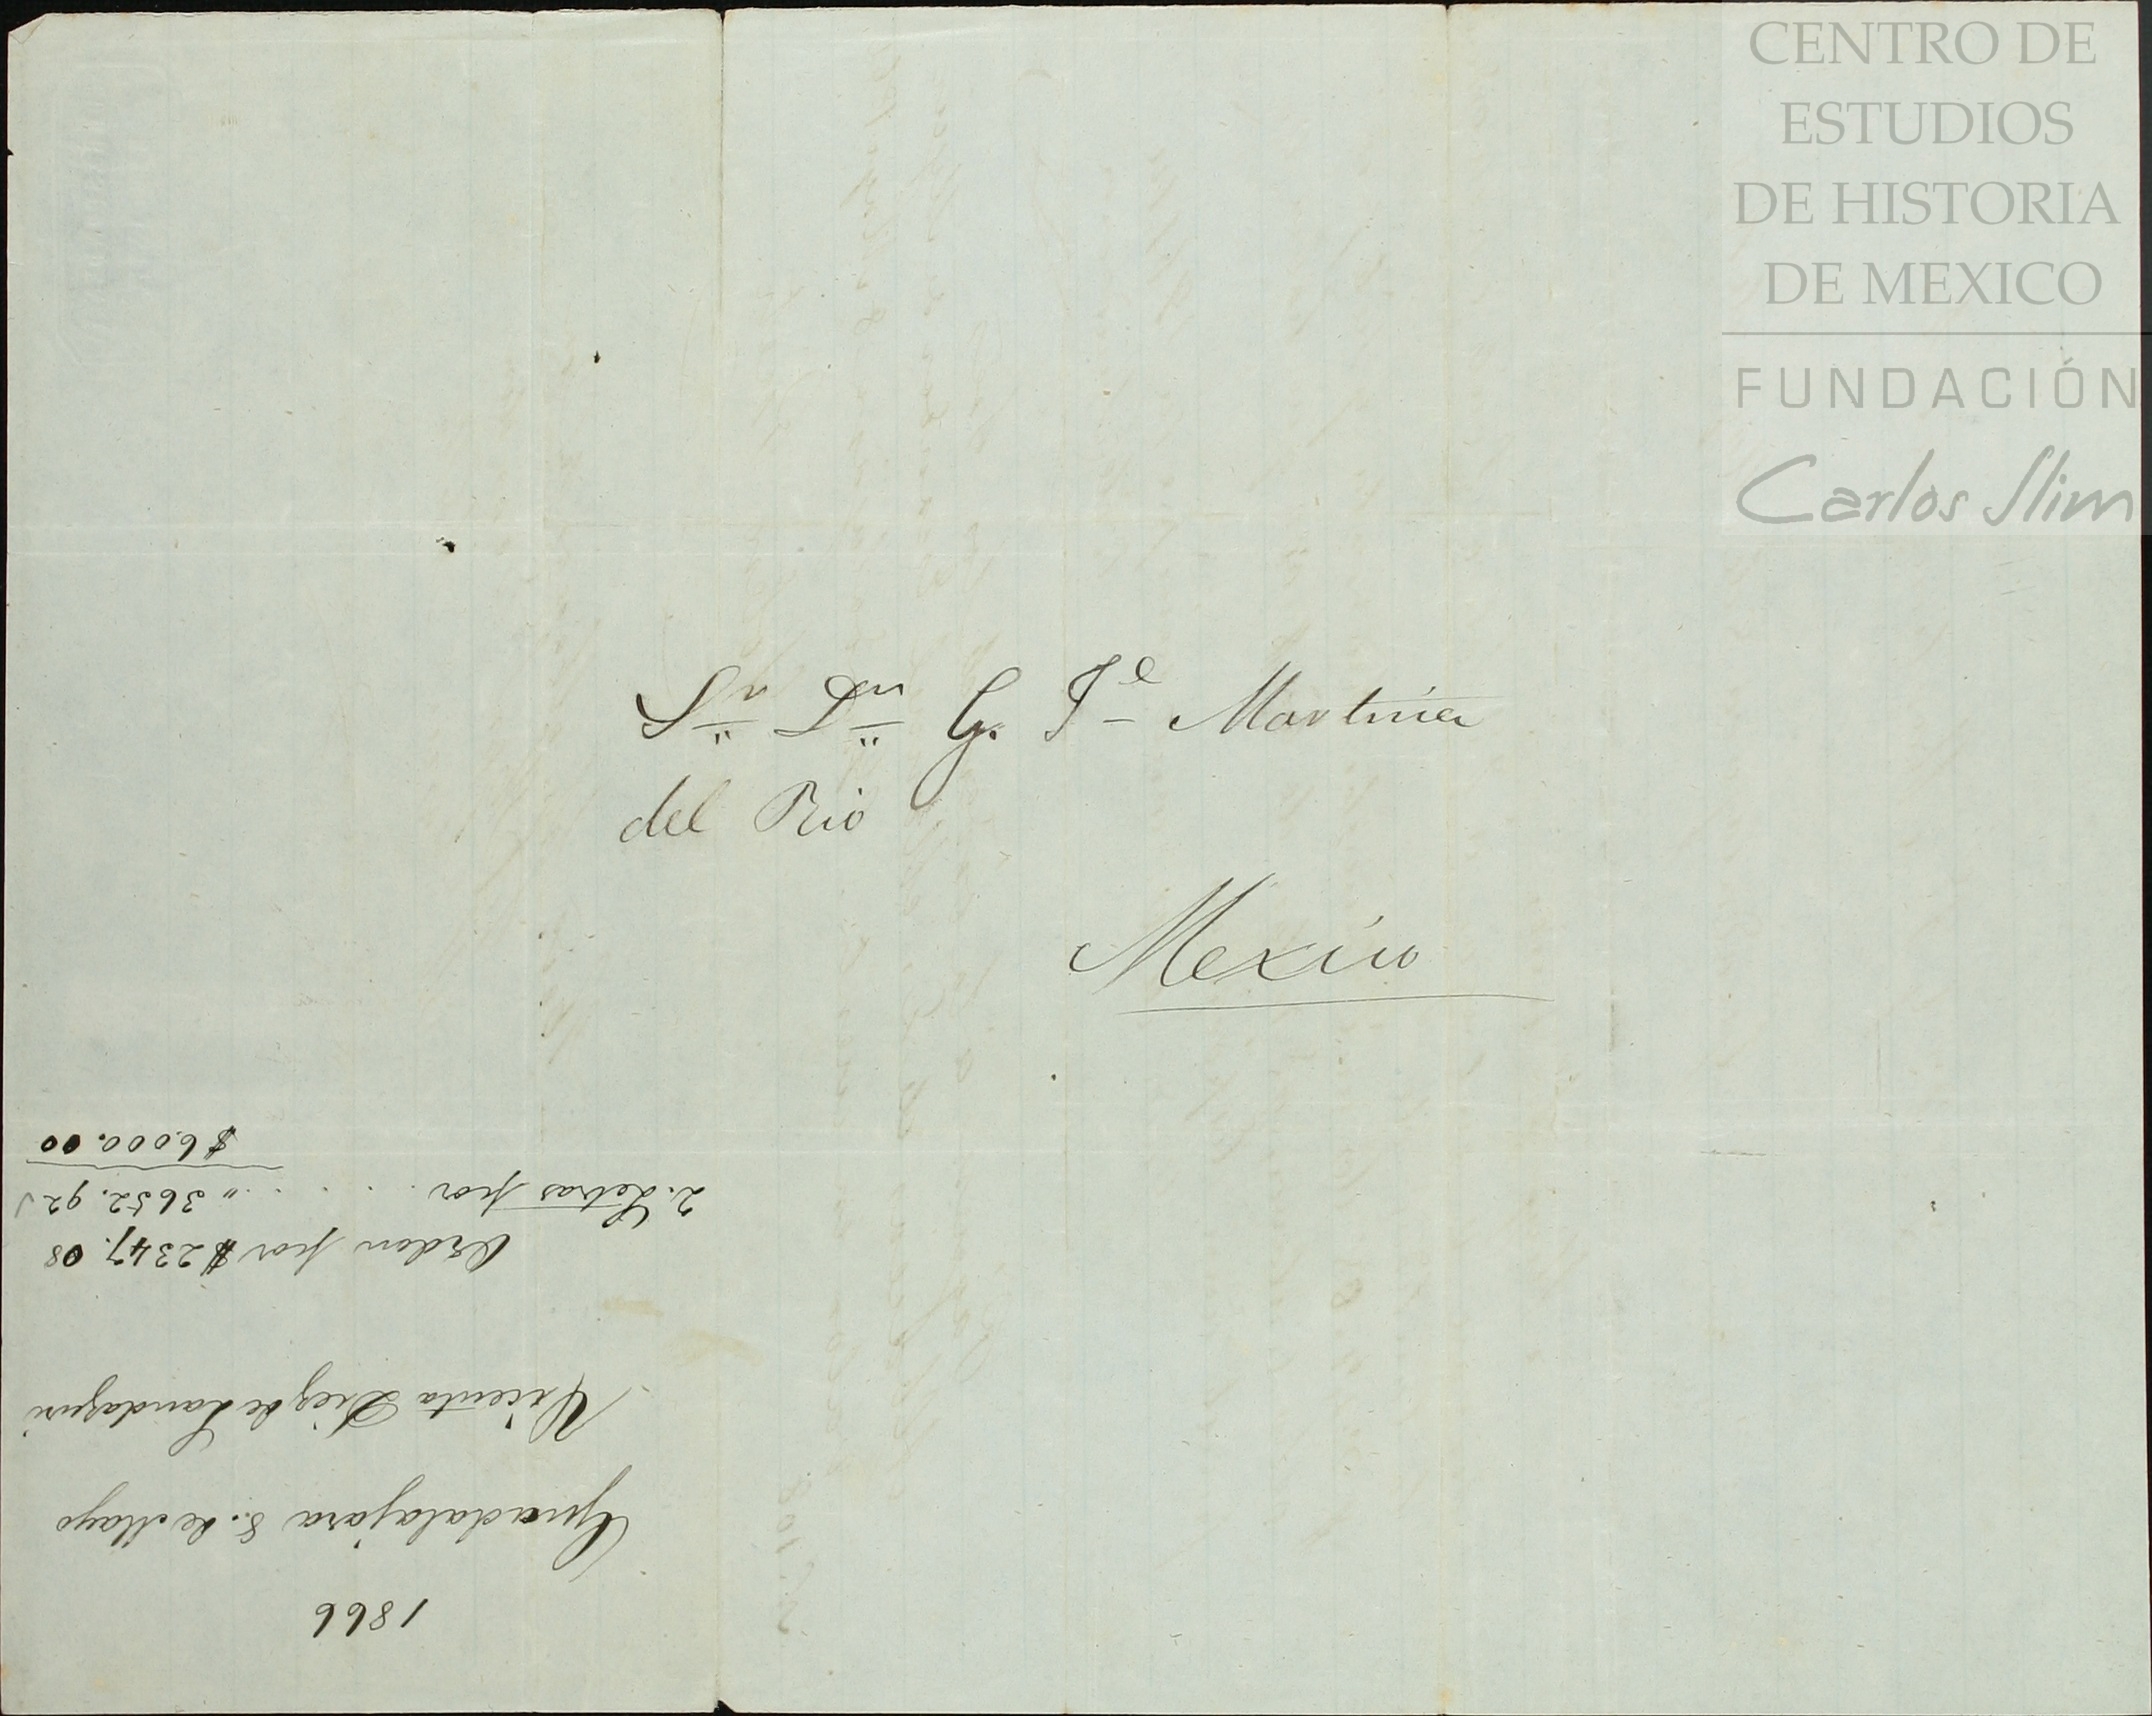 CENTRO DE
ESTUDIOS
DE HISTORIA
DE MEXICO
FUNDACIÓN
Carlos Slim
Sr Dn G. Je Martinez
del Rio
Mexico
1866
Guadalajara 8. de Mayo
Vicenta Diez de Landazuri
Orden por $2347.08
2. Letras por . . . " 3652.92
$6.000.00